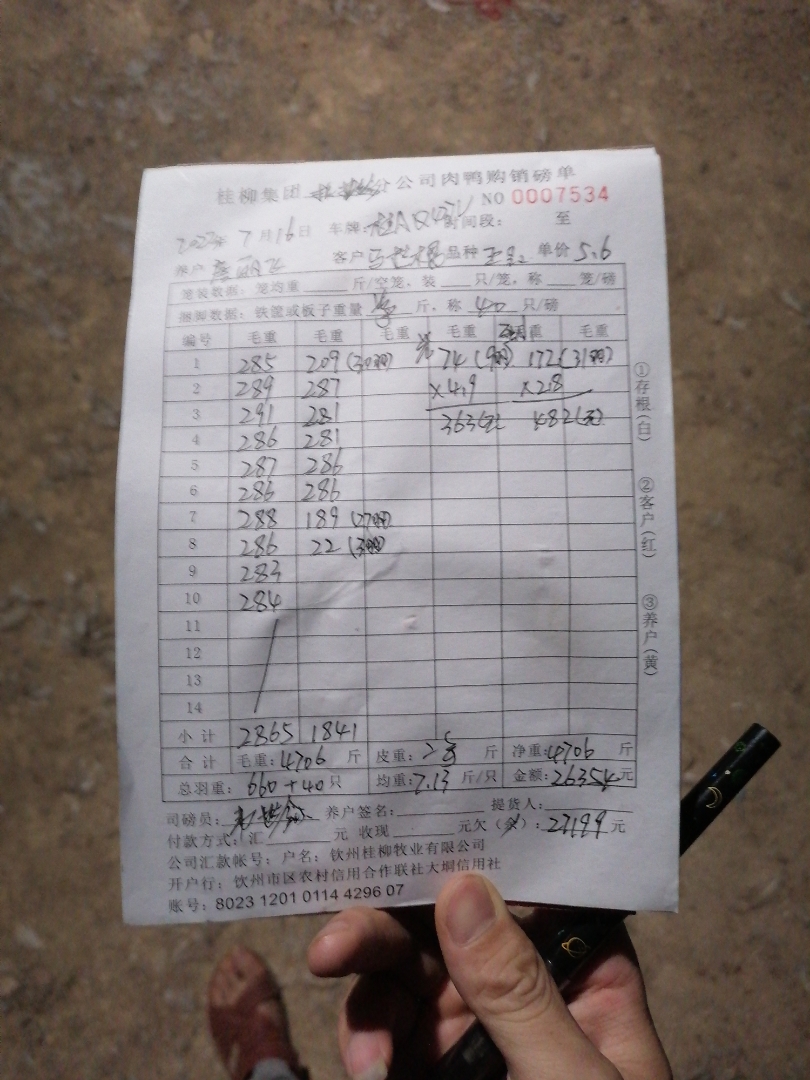 桂柳集团 分公司肉鸭购销磅单
NO 0007534
2023年 7月16日 车牌: 时间段: 至
养户 客户 品种 单价 5.6
笼装数据: 笼均重 斤/空笼, 装 只/笼, 称 笼/磅
捆脚数据: 铁筐或板子重量 斤, 称 40 只/磅
编号 毛重 毛重 毛重 毛重 毛重 毛重
1 285 209(30羽) 74(9羽) 172(31羽)
2 289 287 ×4.9 ×2.8
3 291 281 363(元) 482(元)
4 286 281
5 287 286
6 286 286
7 288 189(27羽)
8 286 22(3羽)
9 283
10 284
11
12
13
14
小计 2865 1841
合计 毛重: 4706 斤 皮重: 斤 净重: 4706 斤
总羽重: 660+40 只 均重: 7.13 斤/只 金额: 26354 元
司磅员: 养户签名: 提货人:
付款方式: 汇 元 收现 元欠(余): 27199 元
公司汇款帐号: 户名: 钦州桂柳牧业有限公司
开户行: 钦州市区农村信用合作联社大垌信用社
账号: 8023 1201 0114 4296 07
①存根(白)
②客户(红)
③养户(黄)